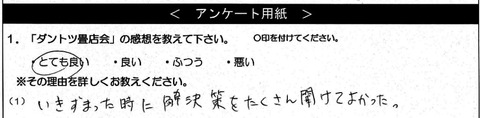 < アンケート用紙 >
1．「ダントツ畳店会」の感想を教えて下さい。 〇印を付けてください。
・とても良い ・良い ・ふつう ・悪い
※その理由を詳しくお教えください。
(1) いきずまった時に解決策をたくさん聞けてよかった。